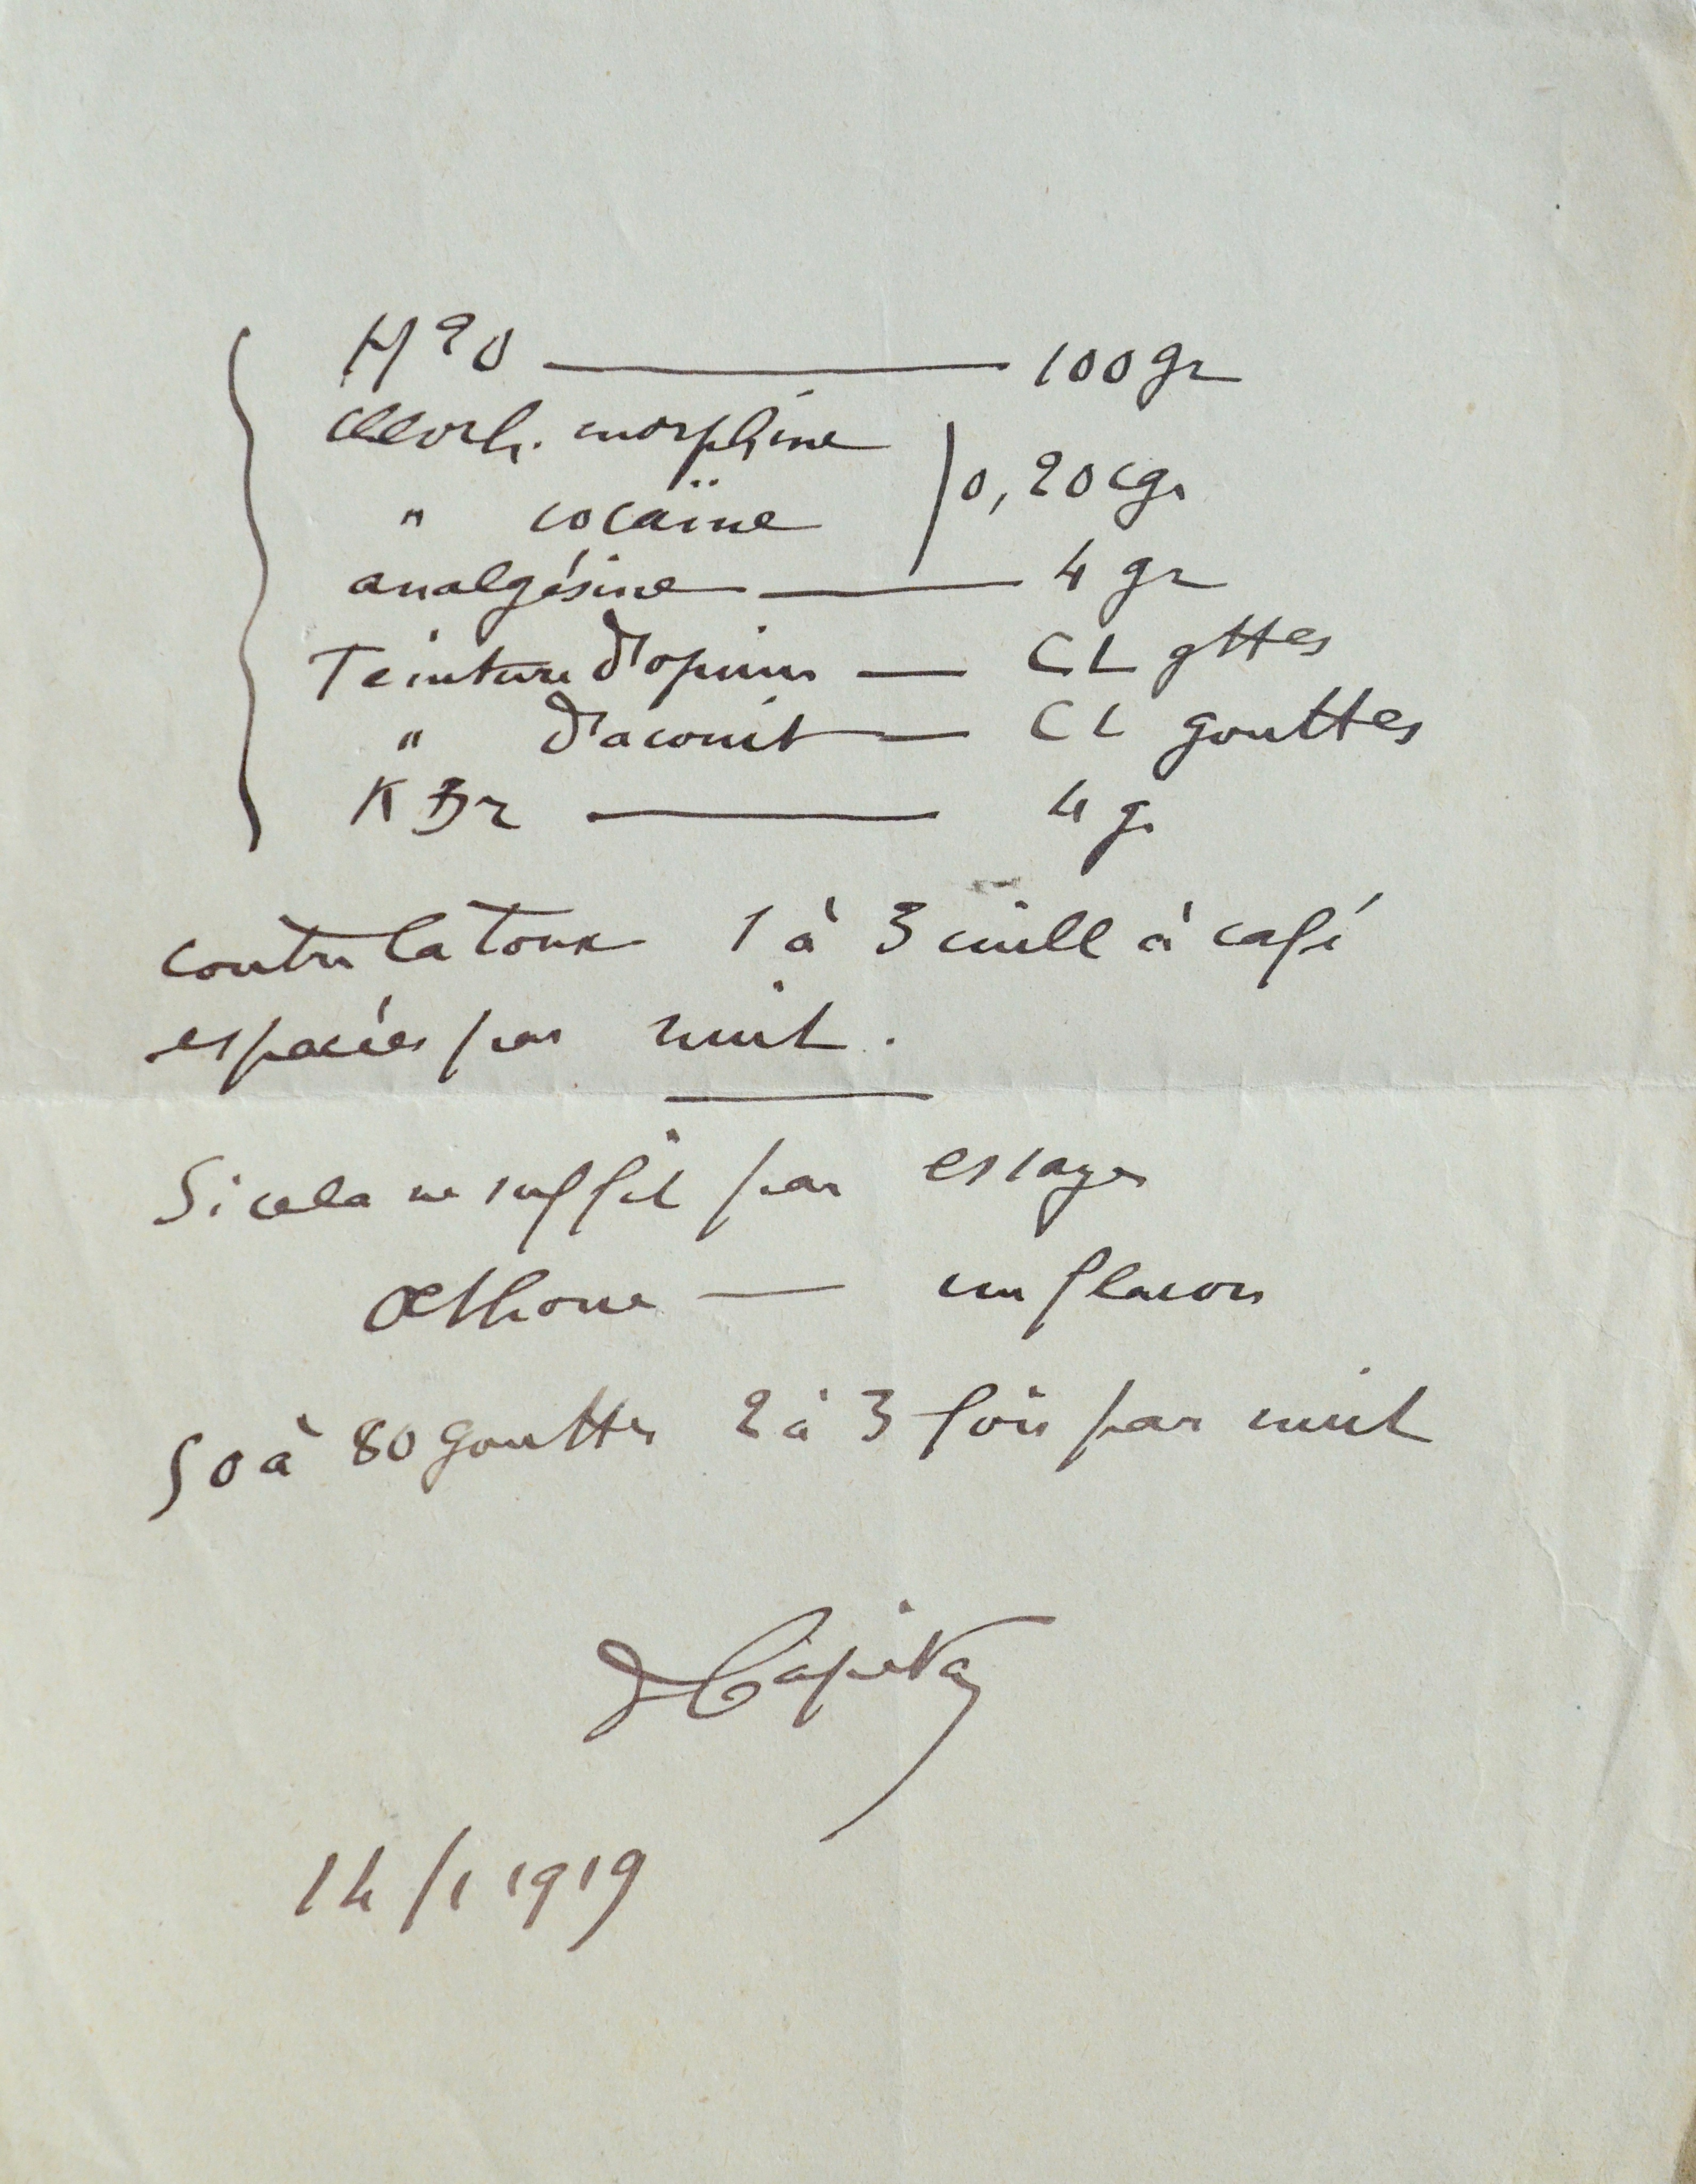 H²O — 100 gr
Chlorh. morphine
" cocaïne } 0,20 cgr
analgésine — 4 gr
Teinture d'opium — CL gttes
" d'aconit — CL gouttes
K Br — 4 g.
contre la toux 1 à 3 cuill à café
espacées par nuit.
Si cela ne suffit pas essayer
Œthone — un flacon
50 à 80 gouttes 2 à 3 fois par nuit
Dr Capitan
14/1 1919